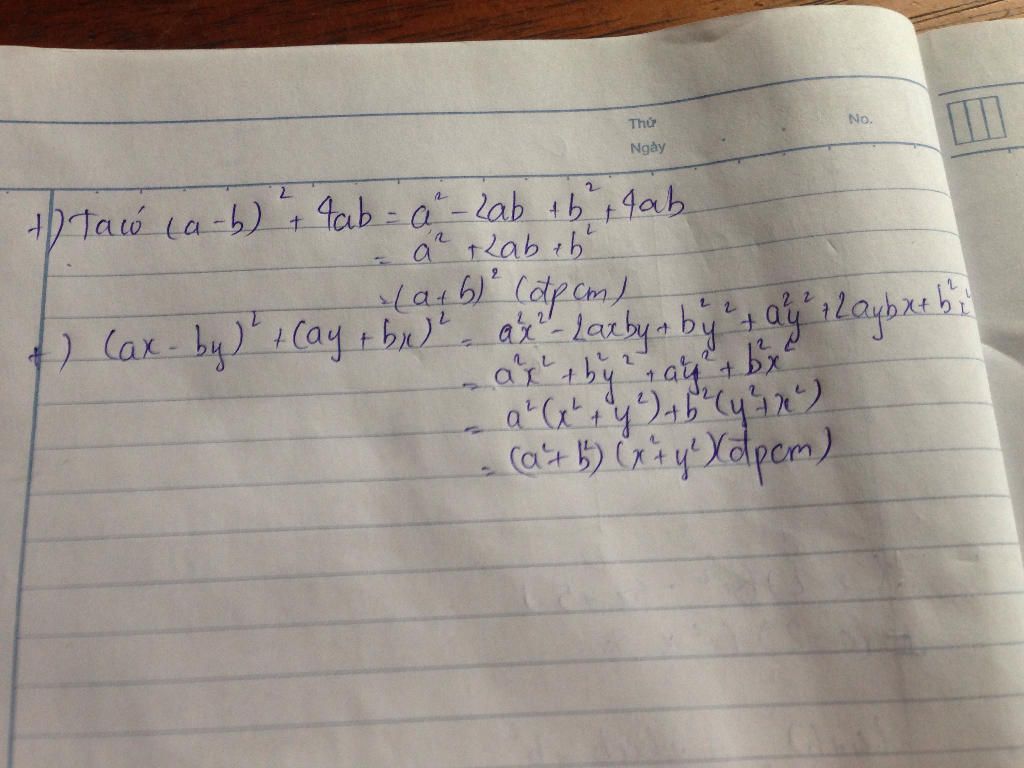 Thứ
No.
Ngày
+) Ta có (a-b)² + 4ab = a² - 2ab + b² + 4ab
= a² + 2ab + b²
= (a+b)² (đpcm)
+) (ax - by)² + (ay + bx)² = a²x² - 2axby + b²y² + a²y² + 2aybx + b²x²
= a²x² + b²y² + a²y² + b²x²
= a²(x² + y²) + b²(y² + x²)
= (a² + b²) (x² + y²) (đpcm)